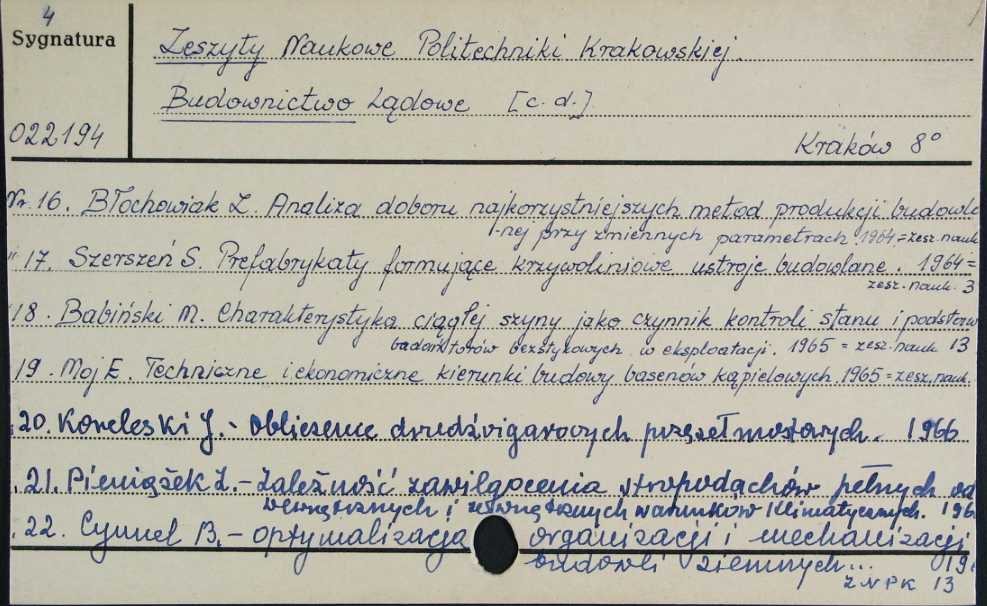 4
Sygnatura
Zeszyty Naukowe Politechniki Krakowskiej.
Budownictwo Lądowe [c.d.]
022194
Kraków 8°
Nr 16. Błochowiak Z. Analiza doboru najkorzystniejszych metod produkcji budowla
-nej przy zmiennych parametrach. 1964 = zesz. nauk
" 17. Szerszeń S. Prefabrykaty formujące krzywoliniowe ustroje budowlane. 1964 =
zesz. nauk. 3
"18. Babiński M. Charakterystyka ciągłej szyny jako czynnik kontroli stanu i podstaw
badań torów bezstykowych w eksploatacji. 1965 = zesz. nauk 13
"19. Moj E. Techniczne i ekonomiczne kierunki budowy basenów kąpielowych. 1965 = zesz. nauk.
"20. Koreleski J. - Obliczenie dwudźwigarowych przęseł mostowych. 1966
"21. Pieniążek Z. - Zależność zawilgocenia stropodachów pełnych od
wewnętrznych i zewnętrznych warunków klimatycznych. 196
"22. Cymmel B. - optymalizacja organizacji i mechanizacji
budowli ziemnych... 19
ZNPK 13